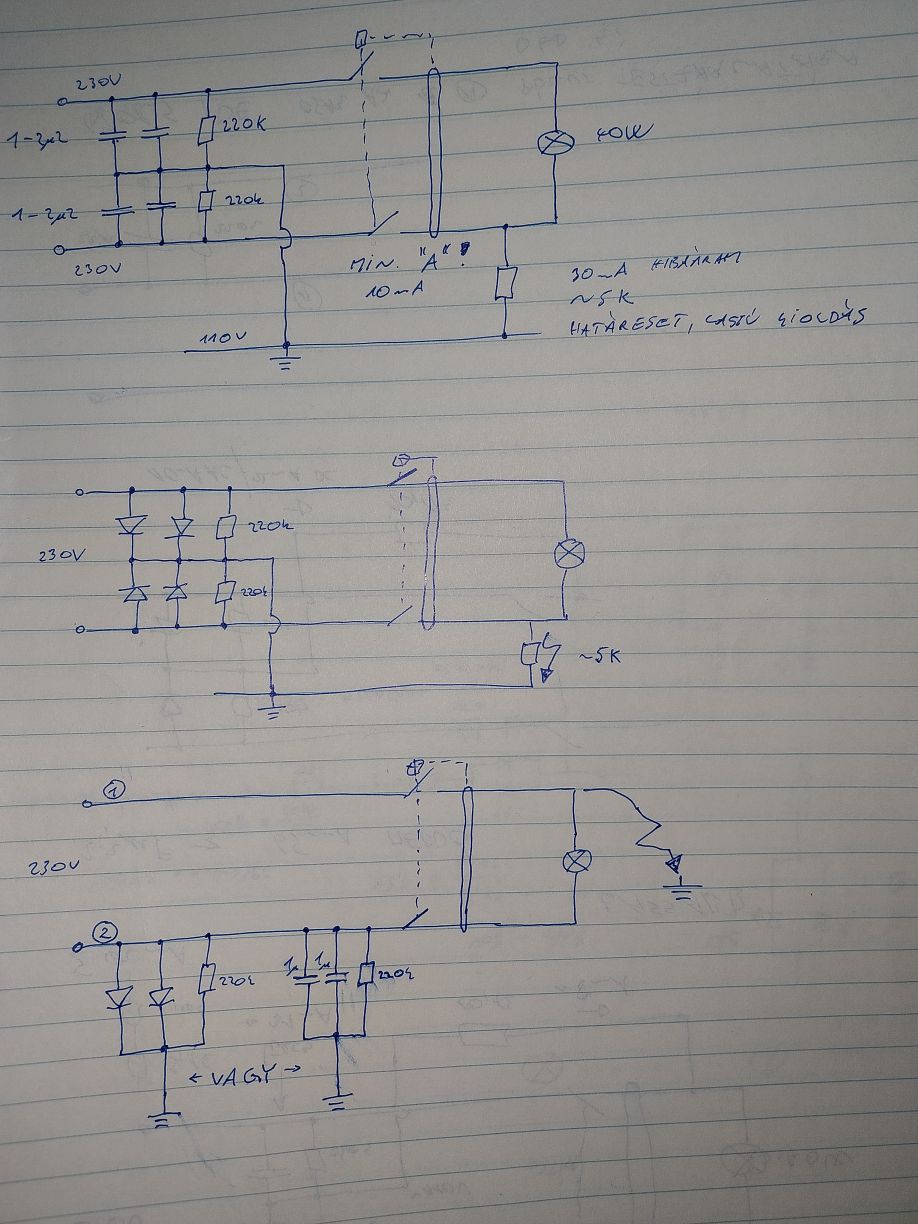 230V
1-2µ2
220K
40W
1-2µ2
220k
230V
MIN. "A"!
10mA
30mA HIBAÁRAM
~5K
HATÁRESET, LASSÚ KIOLDÁS
110V
220k
230V
220k
~5K
1
230V
2
220k
1µ
1µ
220k
← VAGY →